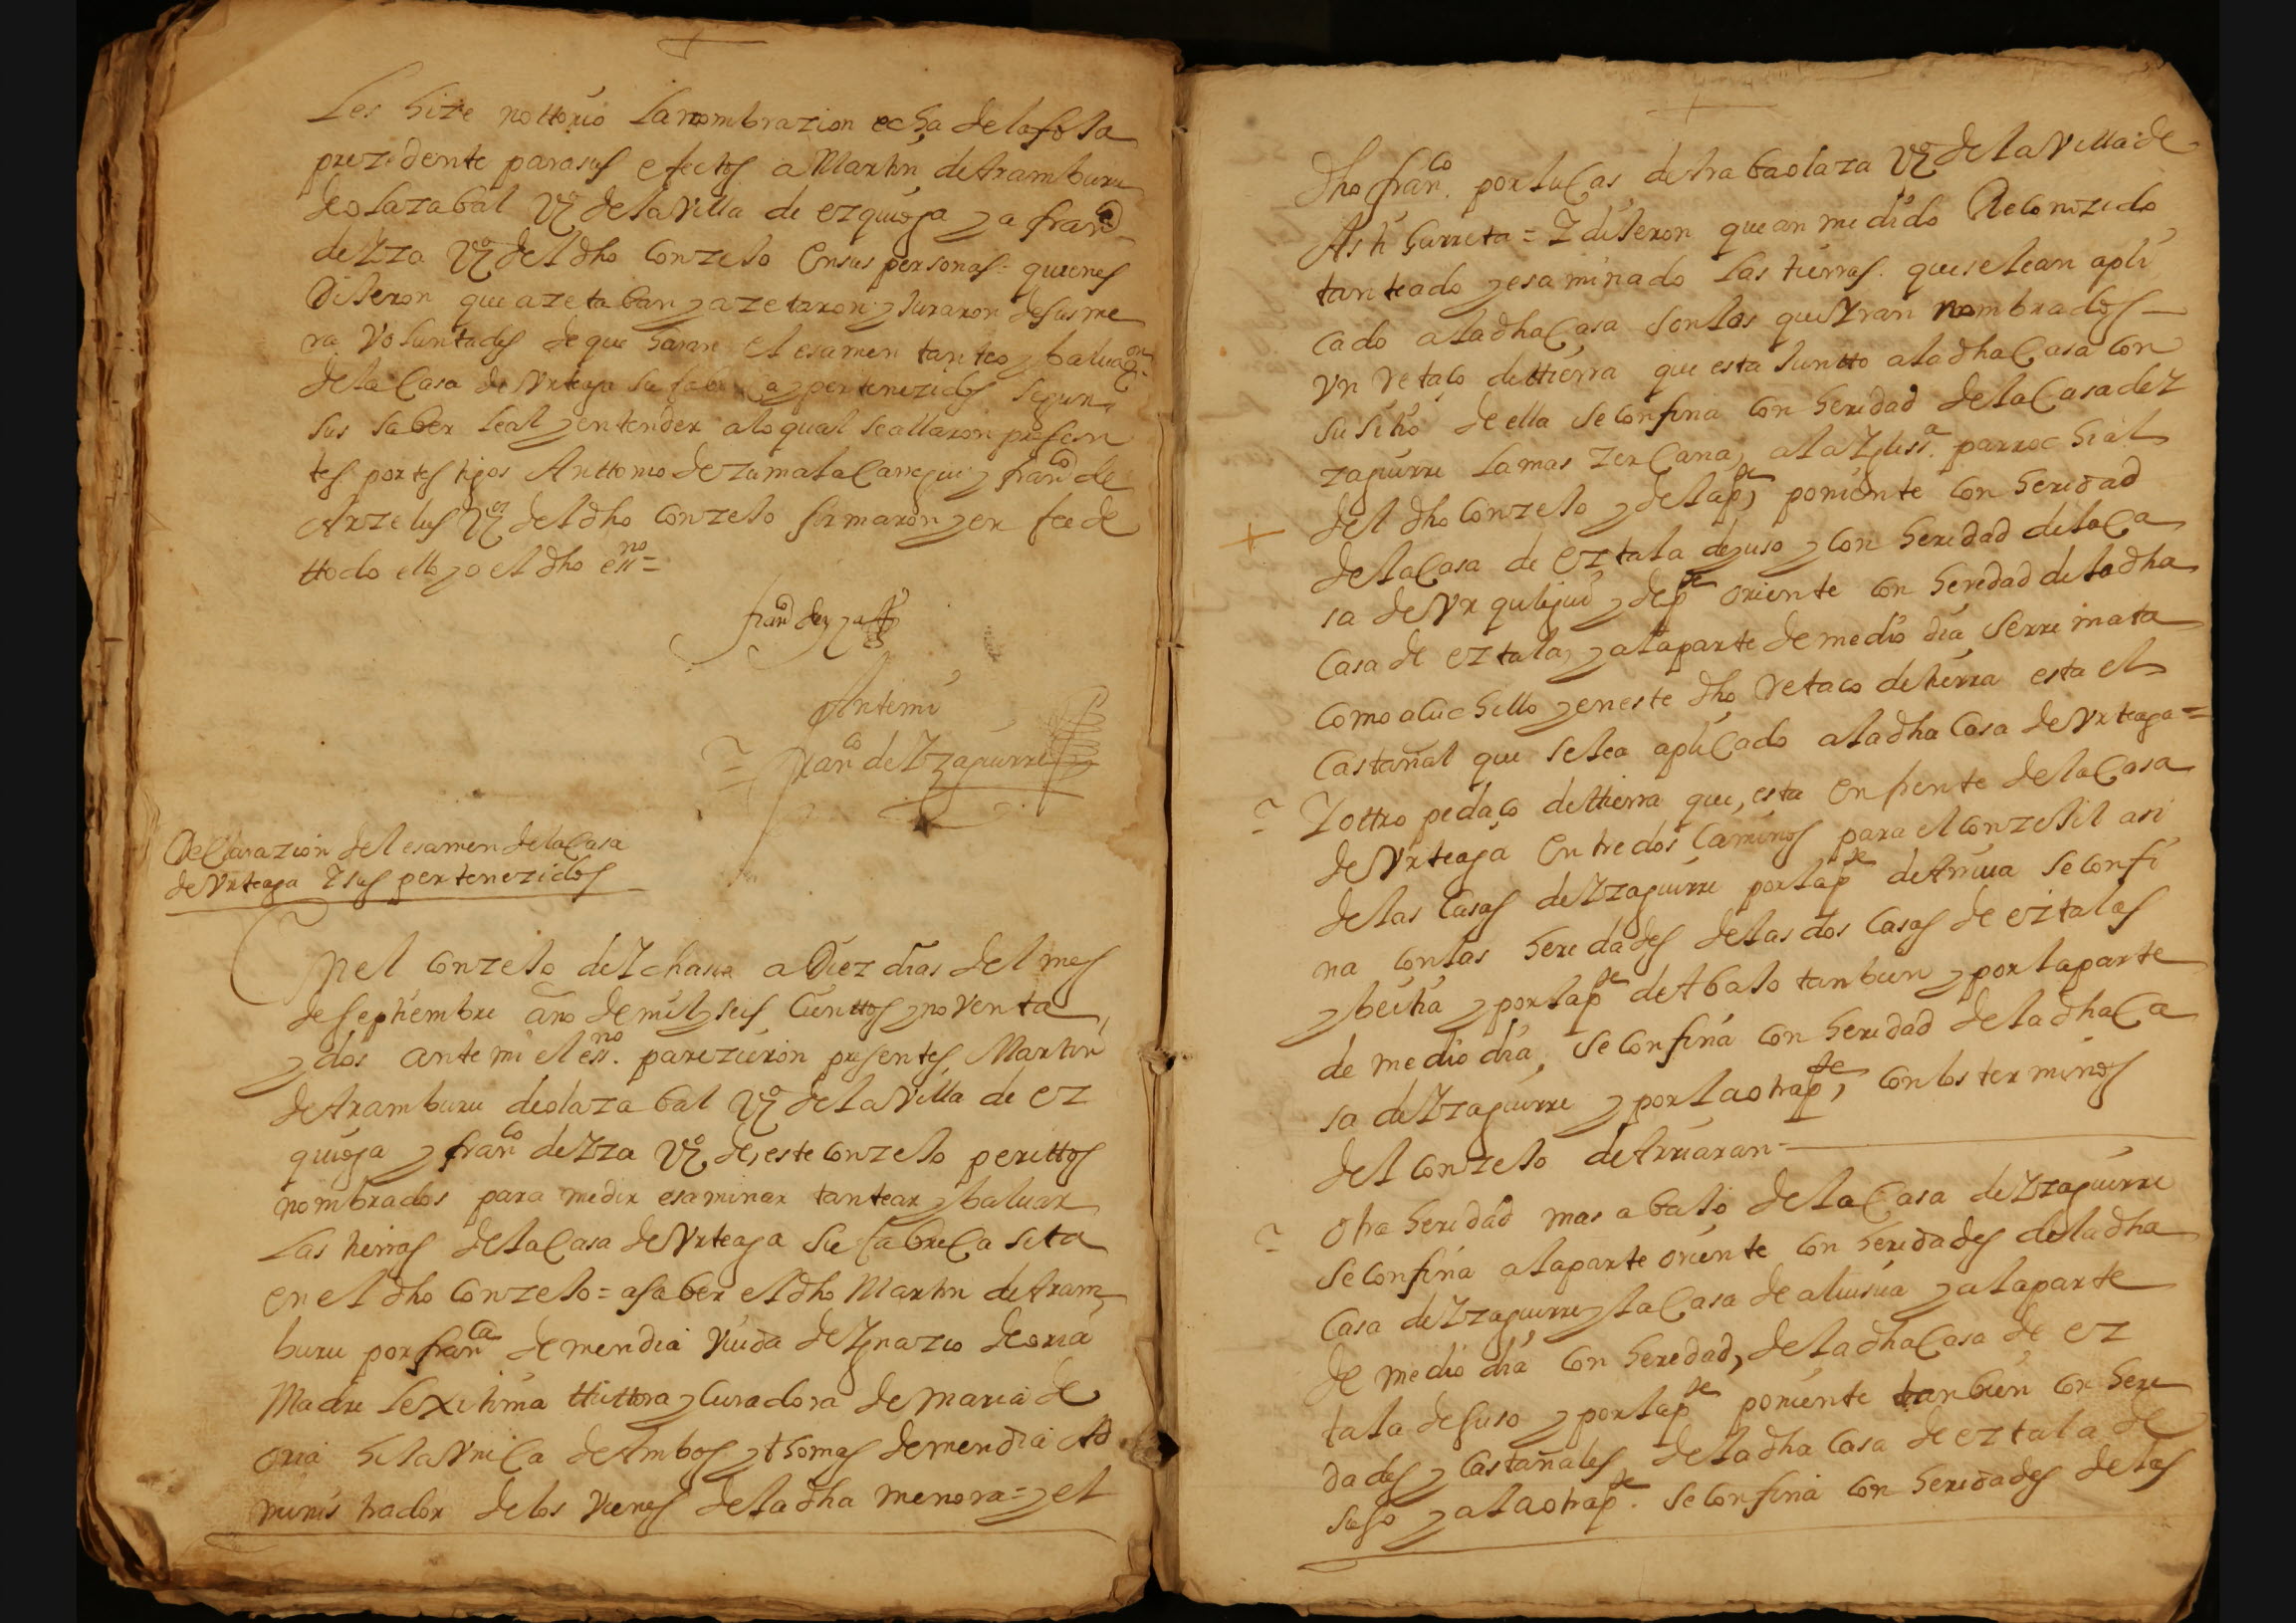 Les hize nottorio la nombrazion echa de la foxa
prezedente para sus efectos a Martin de Aramburu
de olazabal Vº de la Villa de ezquioga y a franco
de Yza Vº del dho Conzejo en sus personas = quienes
Dixeron que azetaban y azetaron y Juraron de sus me
ra Voluntades de que haran el esamen tanteo y baluaon
de la Casa de Vrteaga su fabrica y pertenezidos segun
sus saber leal y entender a lo qual se allaron presen
tes por testigos Anttonio de zumalacarregui y franco de
Arzelus Vos del dho Conzejo firmaron y en fee de
ttodo ello yo el dho essno =
franco de yza
Ante mi
= franco de Yzaguirre
Declarazion del esamen de la Casa
de Vrteaga Y sus pertenezidos
En el Conzejo de Ychaso a Diez dias del mes
de septiembre año de mil y seis Cienttos y noventa
y dos ante mi el essno. parezieron presentes Martin
de Aramburu de olazabal Vº de la Villa de ez
quioga y franco de Yza Vº de este Conzejo perittos
nombrados para medir esaminar tantear y baluar
las tierras de la Casa de Vrteaga su fabrica sita
en el dho Conzejo = a saber el dho Martin de Aram
buru por franca de mendia Viuda de Ygnazio de oria
Madre Lexitima ttuttora y Curadora de maria de
oria hija Vnica de Ambos y thomas de mendia Ad
ministrador de los Vienes de la dha menora = y el
dho franco. por lucas de Arabaolaza Vº de la Villa de
Astigarreta = Y dixeron que an medido Reconozido
tanteado y esaminado las tierras. que se le an apli
cado a la dha Casa son las que Yran nombrados
Vn retaço de ttierra que esta Juntto a la dha Casa con
su sitio de ella se confina con heredad de la Casa de Y
zaguirre la mas zercana, a la Yglessa. parrochial
del dho Conzejo y de la pte, poniente con heredad
de la Casa de eztala de yuso y con heredad de la Ca
sa de Vrquijui y de pte oriente con heredad de la dha
Casa de eztala, y a la parte de medio dia serrimata
como a cuchillo y en este dho retaco de tierra esta el
Castañal que se le a aplicado a la dha Casa de Vrteaga =
= Y ottro pedaço de ttierra que, esta en frente de la Casa
de Vrteaga entre dos Caminos para el Conzejil asi
de las Casas de Yzaguirre por la pte de Arriua se confi
na con las heredades de las dos Casas de eztalas
y beitia y por la pte de Abajo tanbien y por la parte
de medio dia, se confina con heredad de la dha Ca
sa de Yzaguirre y por la otra pte, con los terminos
del Conzejo de Arriaran =
= otra heredad mas abajo de la Casa de Yzaguirre
se confina a la parte oriente con heredades de la dha
Casa de Yzaguirre y la Casa de alusua y a la parte
de medio dia con heredad, de la dha Casa de ez
tala de suso y por la pte poniente tanbien con here
dades y Castañales, de la dha Casa de eztala de
suso y a la otra pte. se confina con heredades de las